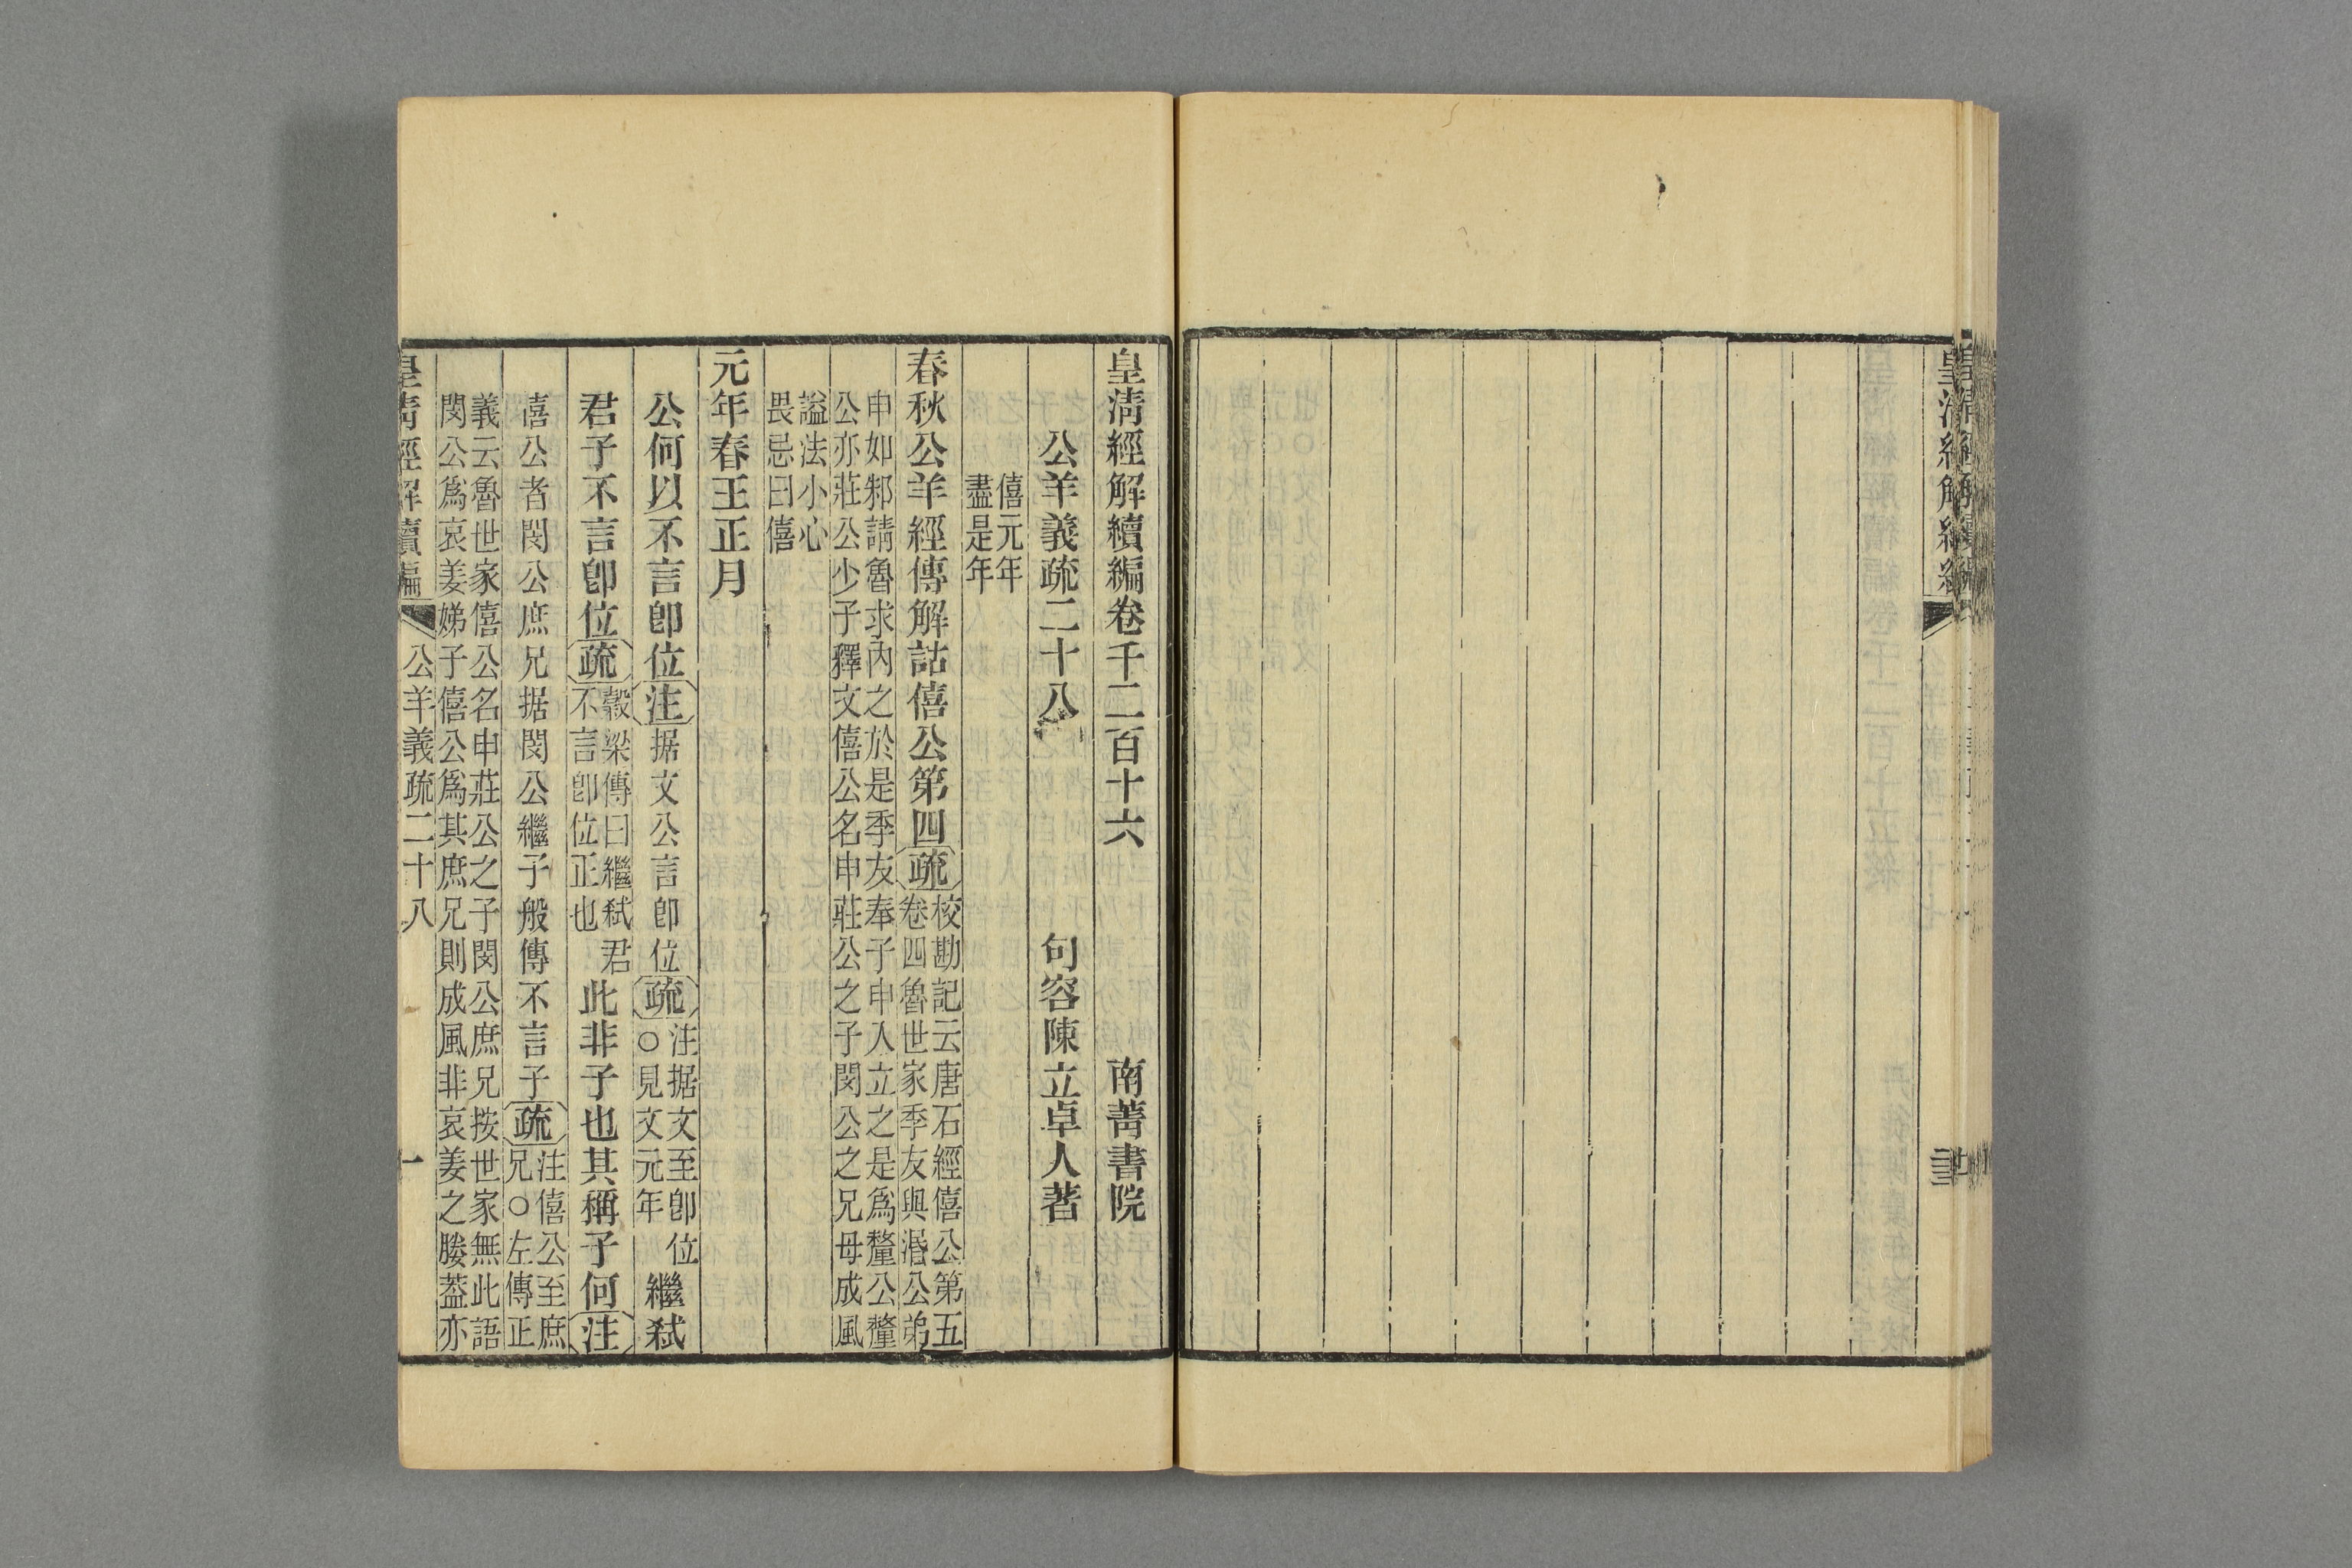 皇清經解續編卷千二百十六 南菁書院
公羊義疏二十八 句容陳立卓人著
僖元年
盡是年
春秋公羊經傳解詁僖公第四疏校勘記云唐石經僖公第五
卷四魯世家季友與湣公弟
申如邾請魯求內之於是季友奉子申入立之是爲釐公釐
公亦莊公少子釋文僖公名申莊公之子閔公之兄母成風
謚法小心
畏忌曰僖
元年春王正月
公何以不言卽位注据文公言卽位疏注据文至卽位
○見文元年
繼弑
君子不言卽位疏穀梁傳曰繼弑君
不言卽位正也
此非子也其稱子何注
僖公者閔公庶兄据閔公繼子般傳不言子疏注僖公至庶
兄○左傳正
義云魯世家僖公名申莊公之子閔公庶兄按世家無此語
閔公爲哀姜娣子僖公爲其庶兄則成風非哀姜之媵葢亦
皇清經解續編 公羊義疏二十八 一